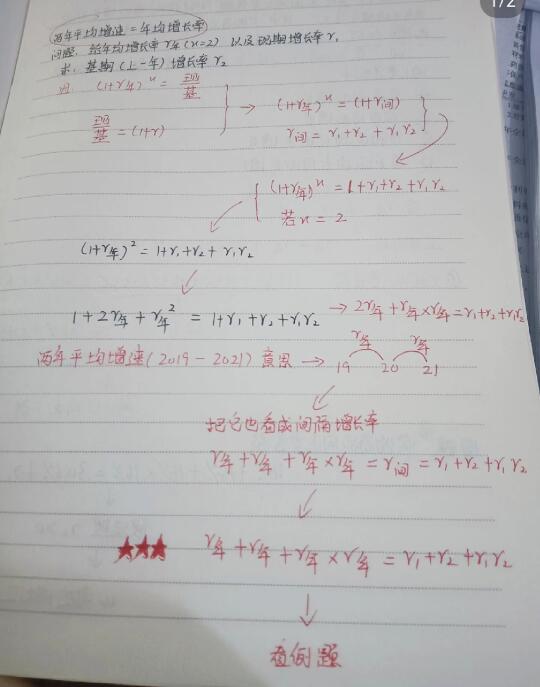 1/2
两年平均增速=年均增长率
问题：给年均增长率r年(n=2) 以及现期增长率r₁
求：基期(上一年)增长率r₂
(1+r年)ⁿ = 现/基
现/基 = (1+r)
→ (1+r年)ⁿ = (1+r间)
r间 = r₁+r₂+r₁r₂
(1+r年)ⁿ = 1+r₁+r₂+r₁r₂
若n = 2
(1+r年)² = 1+r₁+r₂+r₁r₂
1+2r年+r年² = 1+r₁+r₂+r₁r₂ → 2r年+r年×r年=r₁+r₂+r₁r₂
两年平均增速(2019-2021)意思 →
r年 r年
19 20 21
把它也看成间隔增长率
r年+r年+r年×r年=r间=r₁+r₂+r₁r₂
★★★ r年+r年+r年×r年=r₁+r₂+r₁r₂
看例题